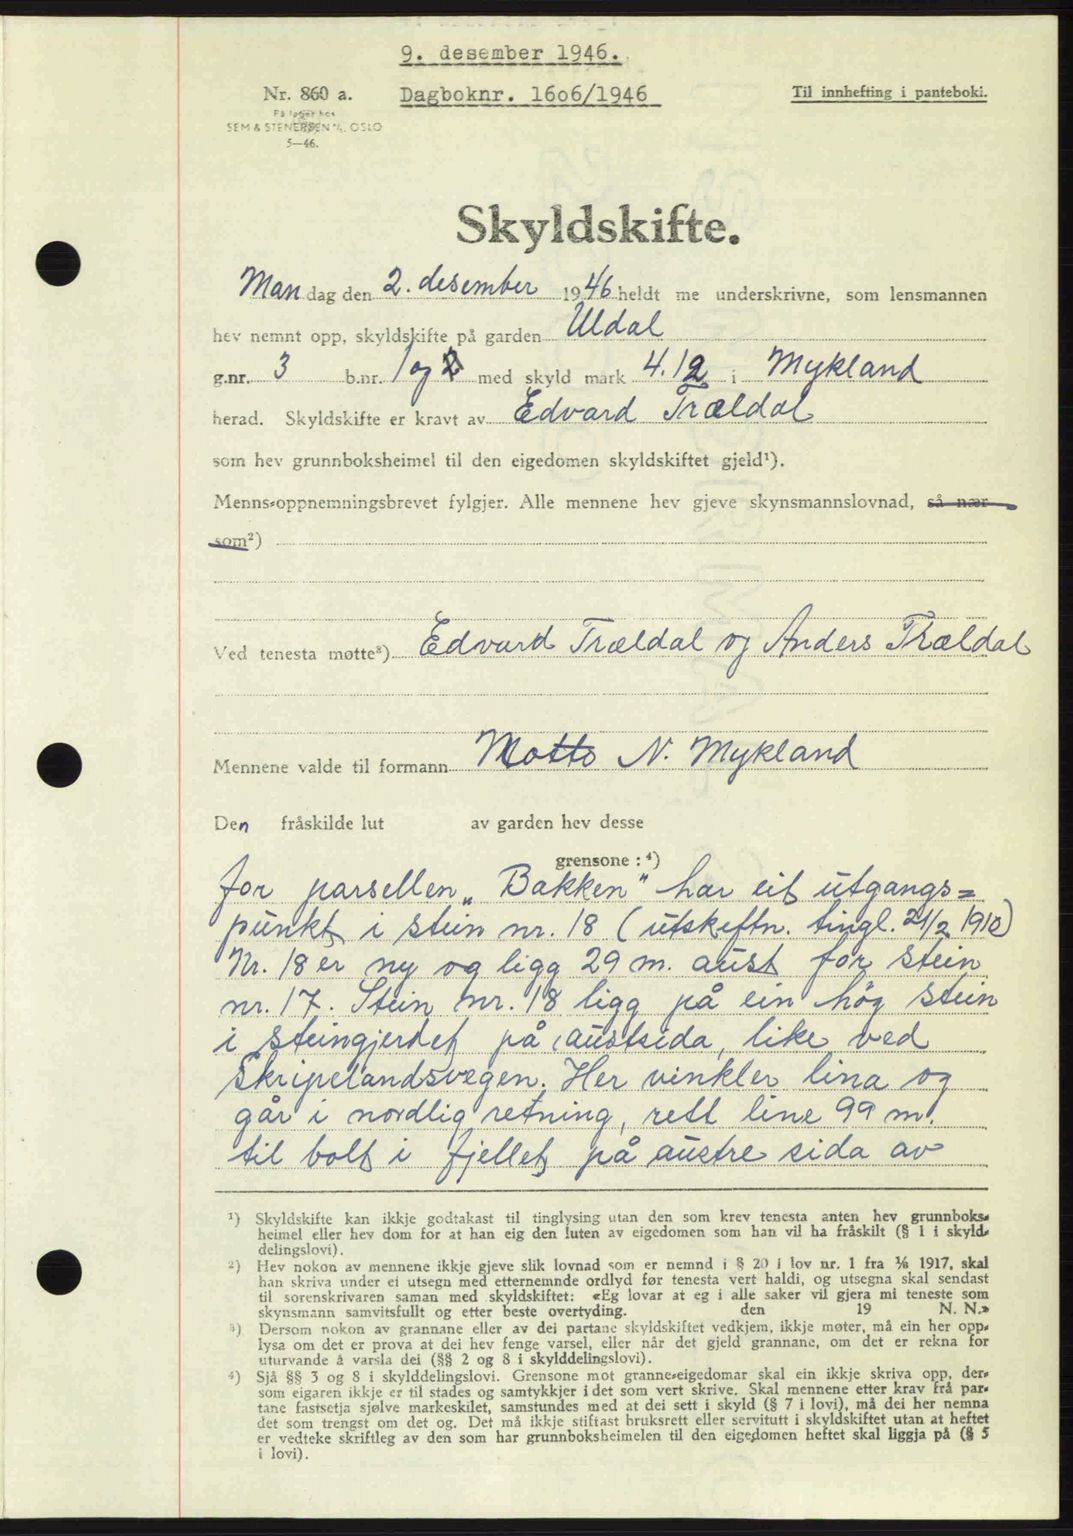 9. desember 1946.
Nr. 860 a.
Dagboknr. 1606/1946
Til innhefting i panteboki.
På lager hos
SEM & STENERSEN A/S, OSLO
5—46.
Skyldskifte.
Mandag den 2. desember 1946 heldt me underskrivne, som lensmannen
hev nemnt opp, skyldskifte på garden Uldal
g.nr. 3 b.nr. 1 og 2 med skyld mark 4.12 i Mykland
herad. Skyldskifte er kravt av Edvard Trældal
som hev grunnboksheimel til den eigedomen skyldskiftet gjeld¹).
Menns-oppnemningsbrevet fylgjer. Alle mennene hev gjeve skynsmannslovnad, så nær
som²)
Ved tenesta møtte³) Edvard Trældal og Anders Trældal
Mennene valde til formann N. Mykland
Den fråskilde lut av garden hev desse
grensone :⁴)
for parsellen „Bakken" har eit utgangs=
punkt i stein nr. 18 (utskeftn. tingl. 21/2 1910)
Nr. 18 er ny og ligg 29 m. aust for stein
nr. 17. Stein nr. 18 ligg på ein høg stein
i steingjerdet på austsida, like ved
Skripelandsvegen. Her vinkler lina og
går i nordlig retning, rett line 99 m.
til bolt i fjellet på austre sida av
¹) Skyldskifte kan ikkje godtakast til tinglysing utan den som krev tenesta anten hev grunnboks-
heimel eller hev dom for at han eig den luten av eigedomen som han vil ha fråskilt (§ 1 i skyld-
delingslovi).
²) Hev nokon av mennene ikkje gjeve slik lovnad som er nemnd i § 20 i lov nr. 1 fra ⅛ 1917, skal
han skriva under ei utsegn med etternemnde ordlyd før tenesta vert haldi, og utsegna skal sendast
til sorenskrivaren saman med skyldskiftet: «Eg lovar at eg i alle saker vil gjera mi teneste som
skynsmann samvitsfullt og etter beste overtyding. den 19 N. N.»
³) Dersom nokon av grannane eller av dei partane skyldskiftet vedkjem, ikkje møter, må ein her opp-
lysa om det er prova at dei hev fenge varsel, eller når det gjeld grannane, om det er rekna for
uturvande å varsla dei (§§ 2 og 8 i skylddelingslovi).
⁴) Sjå §§ 3 og 8 i skylddelingslovi. Grensone mot granne-eigedomar skal ein ikkje skriva opp, der-
som eigaren ikkje er til stades og samtykkjer i det som vert skrive. Skal mennene etter krav frå par-
tane fastsetja sjølve markeskilet, samstundes med at dei sett i skyld (§ 7 i lovi), må dei her nemna
det som trengst om det og. Det må ikkje stiftast bruksrett eller servitutt i skyldskiftet utan at heftet
er vedteke skriftleg av den som har grunnboksheimelen til den eigedomen heftet skal liggja på (§ 5
i lovi).